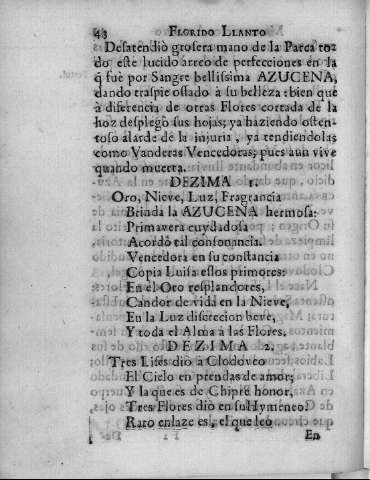 48 FLORIDO LLANTO
Desatendiò grosera mano de la Parca to-
do este lucido arreo de perfecciones en la
q̃ fuè por Sangre bellissima AZUCENA,
dando traspie ossado à su belleza: bien que
à diferencia de otras Flores cortada de la
hoz desplegò sus hojas; ya haziendo osten-
toso alarde de la injuria, ya tendiendolas
como Vanderas Vencedoras; pues aun vive
quando muerta.
DEZIMA 1.
Oro, Nieve, Luz, Fragrancia
Brinda la AZUCENA hermosa:
Primavera cuydadosa
Acordò tal consonancia.
Vencedora en su constancia
Copia Luisa essos primores:
En el Oro resplandores,
Candor de vida en la Nieve,
En la Luz discrecion beve,
Y toda el Alma à las Flores.
DEZIMA 2.
Tres Lises diò à Clodoveo
El Cielo en prendas de amor;
Y la que es de Chipre honor,
Tres Flores diò en su Hymeneo.
Raro enlaze es, el que leo
En